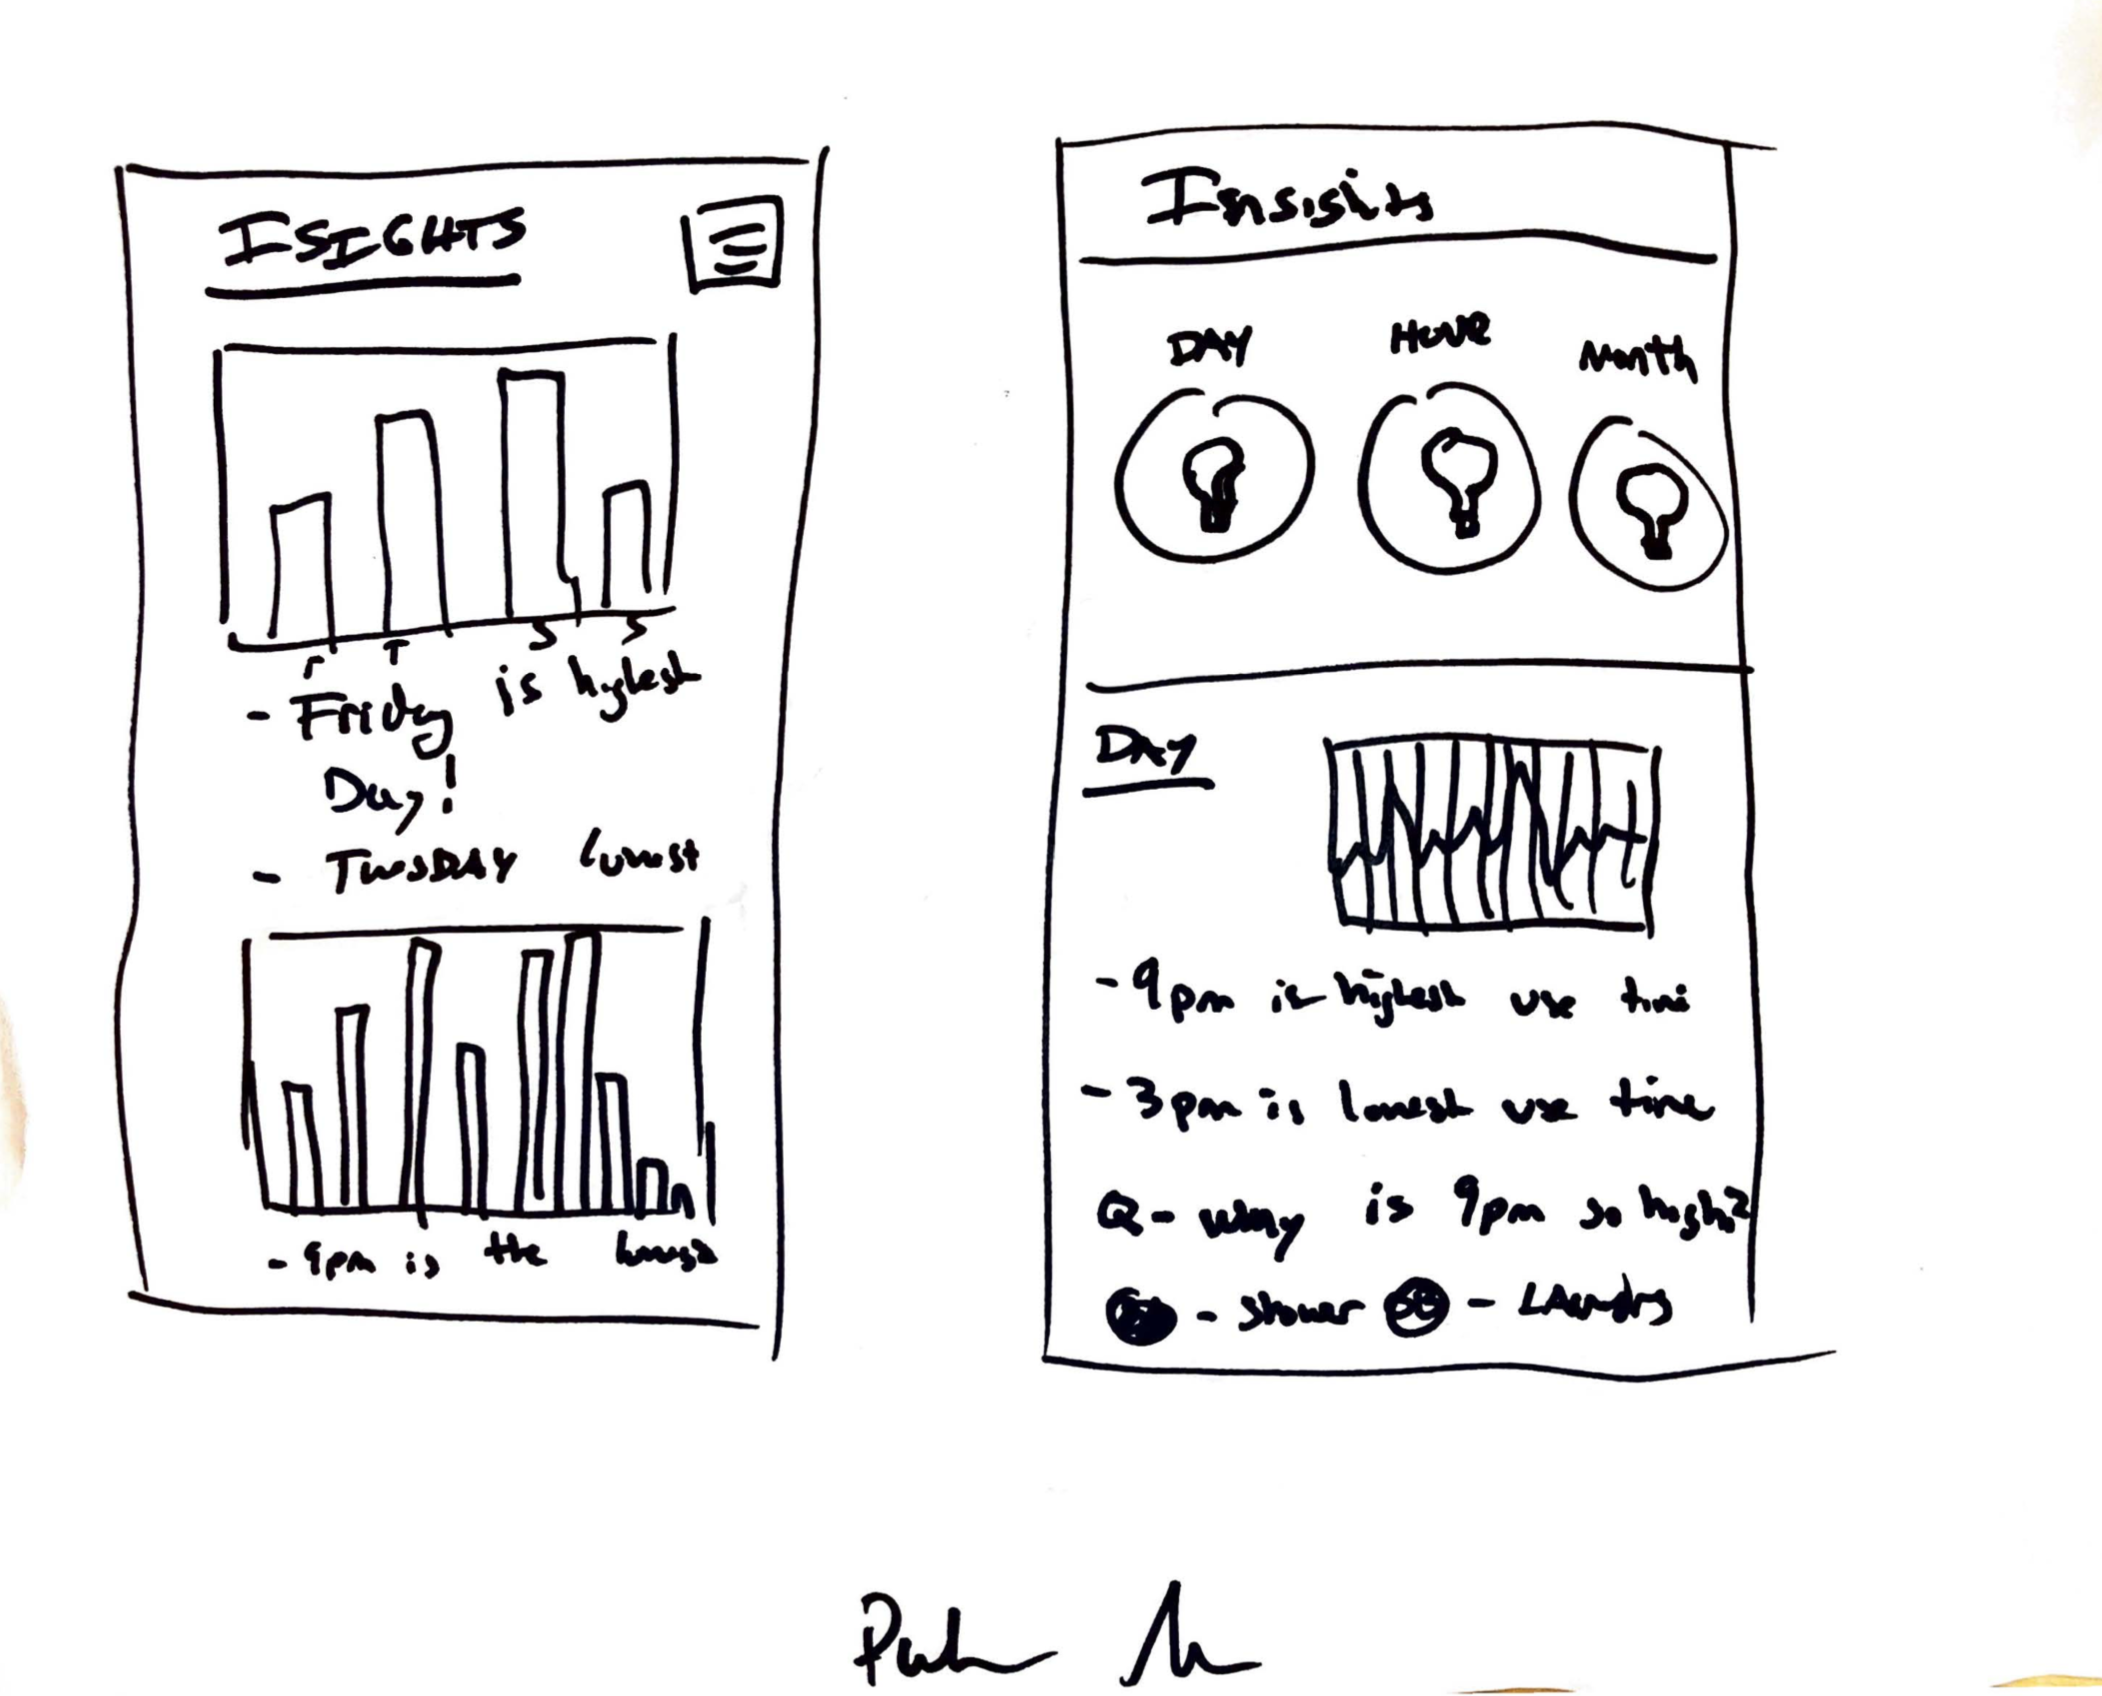 ISIGHTS
F T S S
- Friday is highest
Day!
- TUESDAY lowest
- 9pm is the
Insights
DAY HOUR Month
DAY
- 9pm is highest use time
- 3pm is lowest use time
Q - Why is 9pm so high?
- Shower - LAundry